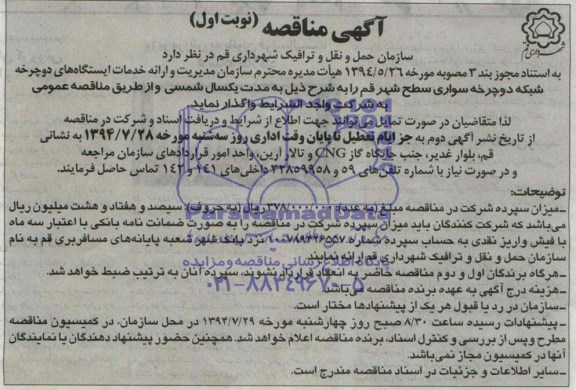 آگهی مناقصه (نوبت اول)
سازمان حمل و نقل و ترافیک شهرداری قم در نظر دارد
به استناد مجوز بند ۳ مصوبه مورخه ۱۳۹٤/٥/۲۶ هیأت مدیره محترم سازمان مدیریت و ارائه خدمات ایستگاه‌های دوچرخه
شبکه دوچرخه سواری سطح شهر قم را به شرح ذیل به مدت یکسال شمسی و از طریق مناقصه عمومی
به شرکت واجد الشرایط واگذار نماید.
لذا متقاضیان در صورت تمایل می‌توانند جهت اطلاع از شرایط و دریافت اسناد و شرکت در مناقصه
از تاریخ نشر آگهی دوم به جز ایام تعطیل تا پایان وقت اداری روز سه‌شنبه مورخه ۱۳۹۴/۷/۲۸ به نشانی
قم، بلوار غدیر، جنب جایگاه گاز CNG و تالار آرین، واحد امور قراردادهای سازمان مراجعه
و در صورت نیاز با شماره تلفن‌های ۵۹ و ۳۲۸۵۹۹۵۸ داخلی‌های ۱۴۱ و ۱۴۲ تماس حاصل فرمایند.
توضیحات:
ـ میزان سپرده شرکت در مناقصه مبلغ (به عدد) ۳۷۸/۰۰۰/۰۰۰ ریال (به حروف) سیصد و هفتاد و هشت میلیون ریال
می‌باشد که شرکت کنندگان باید میزان سپرده شرکت در مناقصه را به صورت ضمانت نامه بانکی با اعتبار سه ماه
یا فیش واریز نقدی به حساب سپرده شماره نزد بانک شهر شعبه پایانه‌های مسافربری قم به نام
سازمان حمل و نقل و ترافیک شهرداری قم ارائه نمایند.
ـ هرگاه برندگان اول و دوم مناقصه حاضر به انعقاد قرارداد نشوند، سپرده آنان به ترتیب ضبط خواهد شد.
ـ هزینه درج آگهی به عهده برنده مناقصه می‌باشد.
ـ سازمان در رد یا قبول هر یک از پیشنهادها مختار است.
ـ پیشنهادات رسیده ساعت ۸/۳۰ صبح روز چهارشنبه مورخه ۱۳۹۴/۷/۲۹ در محل سازمان، در کمیسیون مناقصه
مطرح و پس از بررسی و کنترل اسناد، برنده مناقصه اعلام خواهد شد. همچنین حضور پیشنهاد دهندگان یا نمایندگان
آنها در کمیسیون مجاز نمی‌باشد.
ـ سایر اطلاعات و جزئیات در اسناد مناقصه مندرج است.
ParsNamadData
پایگاه اطلاع رسانی مناقصه و مزایده
۰۲۱-۸۸۳۴۹۶۷۰-۵